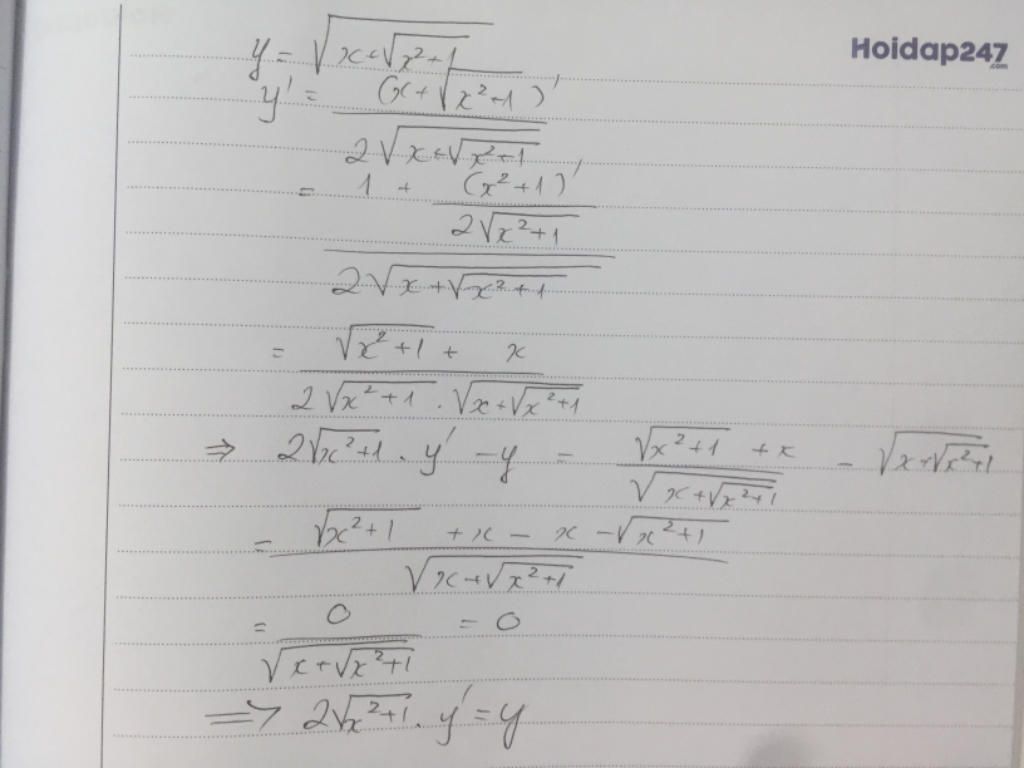 Hoidap247
.com
y = √(x+√(x²+1))
y' = (x+√(x²+1))' / (2√(x+√(x²+1)))
= (1 + (x²+1)' / (2√(x²+1))) / (2√(x+√(x²+1)))
= (√(x²+1) + x) / (2√(x²+1) . √(x+√(x²+1)))
⇒ 2√(x²+1) . y' - y = (√(x²+1) + x) / √(x+√(x²+1)) - √(x+√(x²+1))
= (√(x²+1) + x - x - √(x²+1)) / √(x+√(x²+1))
= 0 / √(x+√(x²+1)) = 0
⇒ 2√(x²+1) . y' = y